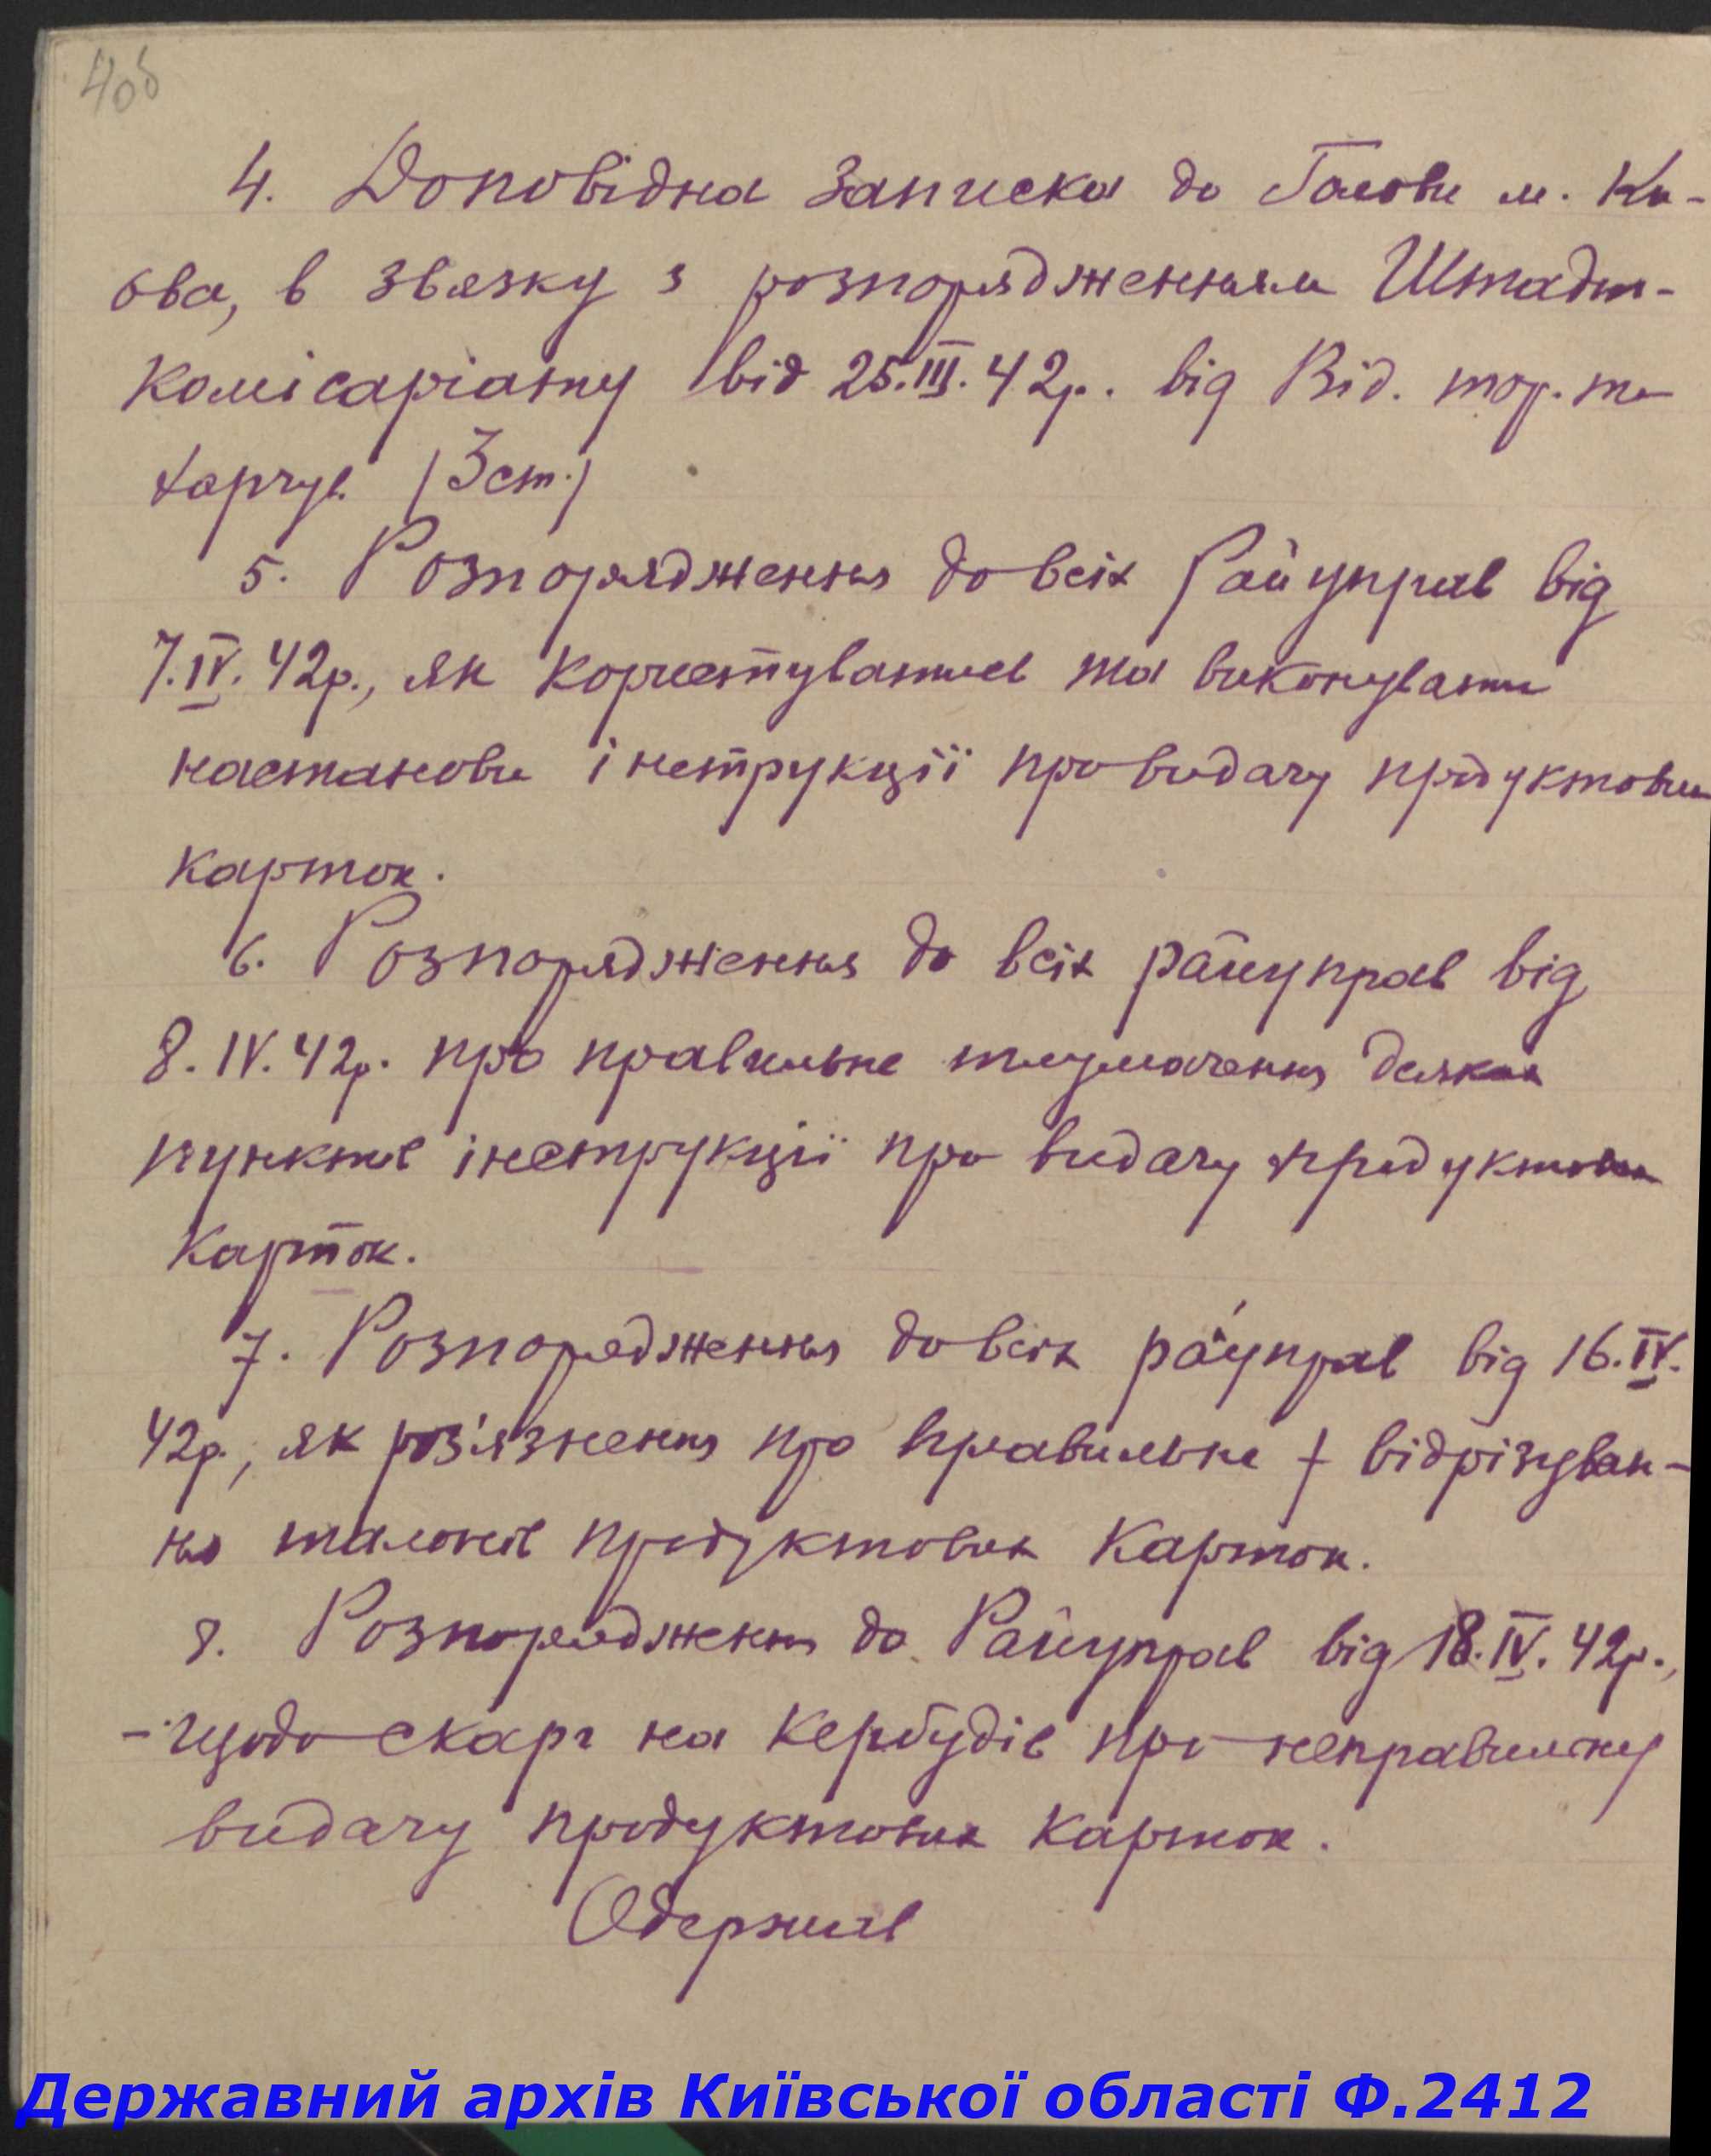 4об
4. Доповідна записка до Голови м. Ки-
єва, в звязку з розпорядженням Штадт-
комісаріату від 25.III.42р. від Від. тор. та
харчув. (3 ст.)
5. Розпорядження до всіх Райуправ від
7.IV.42р., як користуватися та виконувати
настанови інструкції про видачу продуктових
карток.
6. Розпорядження до всіх райуправ від
8.IV.42р. про правильне тлумачення деяких
пунктів інструкції про видачу продуктових
карток.
7. Розпорядження до всіх райуправ від 16.IV.
42р., як роз'язнення про правильне відрізуван-
ня талонів продуктових карток.
8. Розпорядження до Райуправ від 18.IV.42р.,
- щодо скарг на Кербудів про неправильну
видачу продуктових карток.
Одержав
Державний архів Київської області Ф.2412